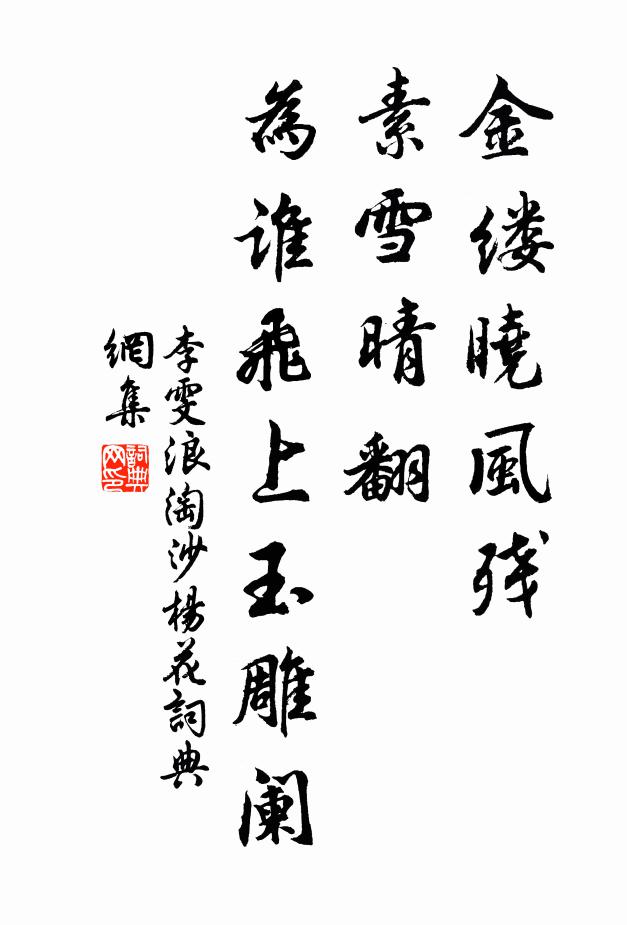 金缕曉風残
素雪晴翻
為誰飛上玉雕阑
李雯浪淘沙楊花詞典
網集
詞典
网印